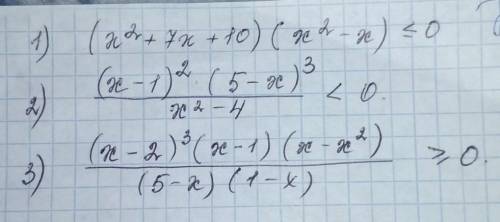 1) (x² + 7x + 10) (x² - x) ≤ 0
2) (x - 1)² · (5 - x)³ / x² - 4 < 0.
3) (x - 2)³ (x - 1) (x - x²) / (5 - x) (1 - x) ≥ 0.